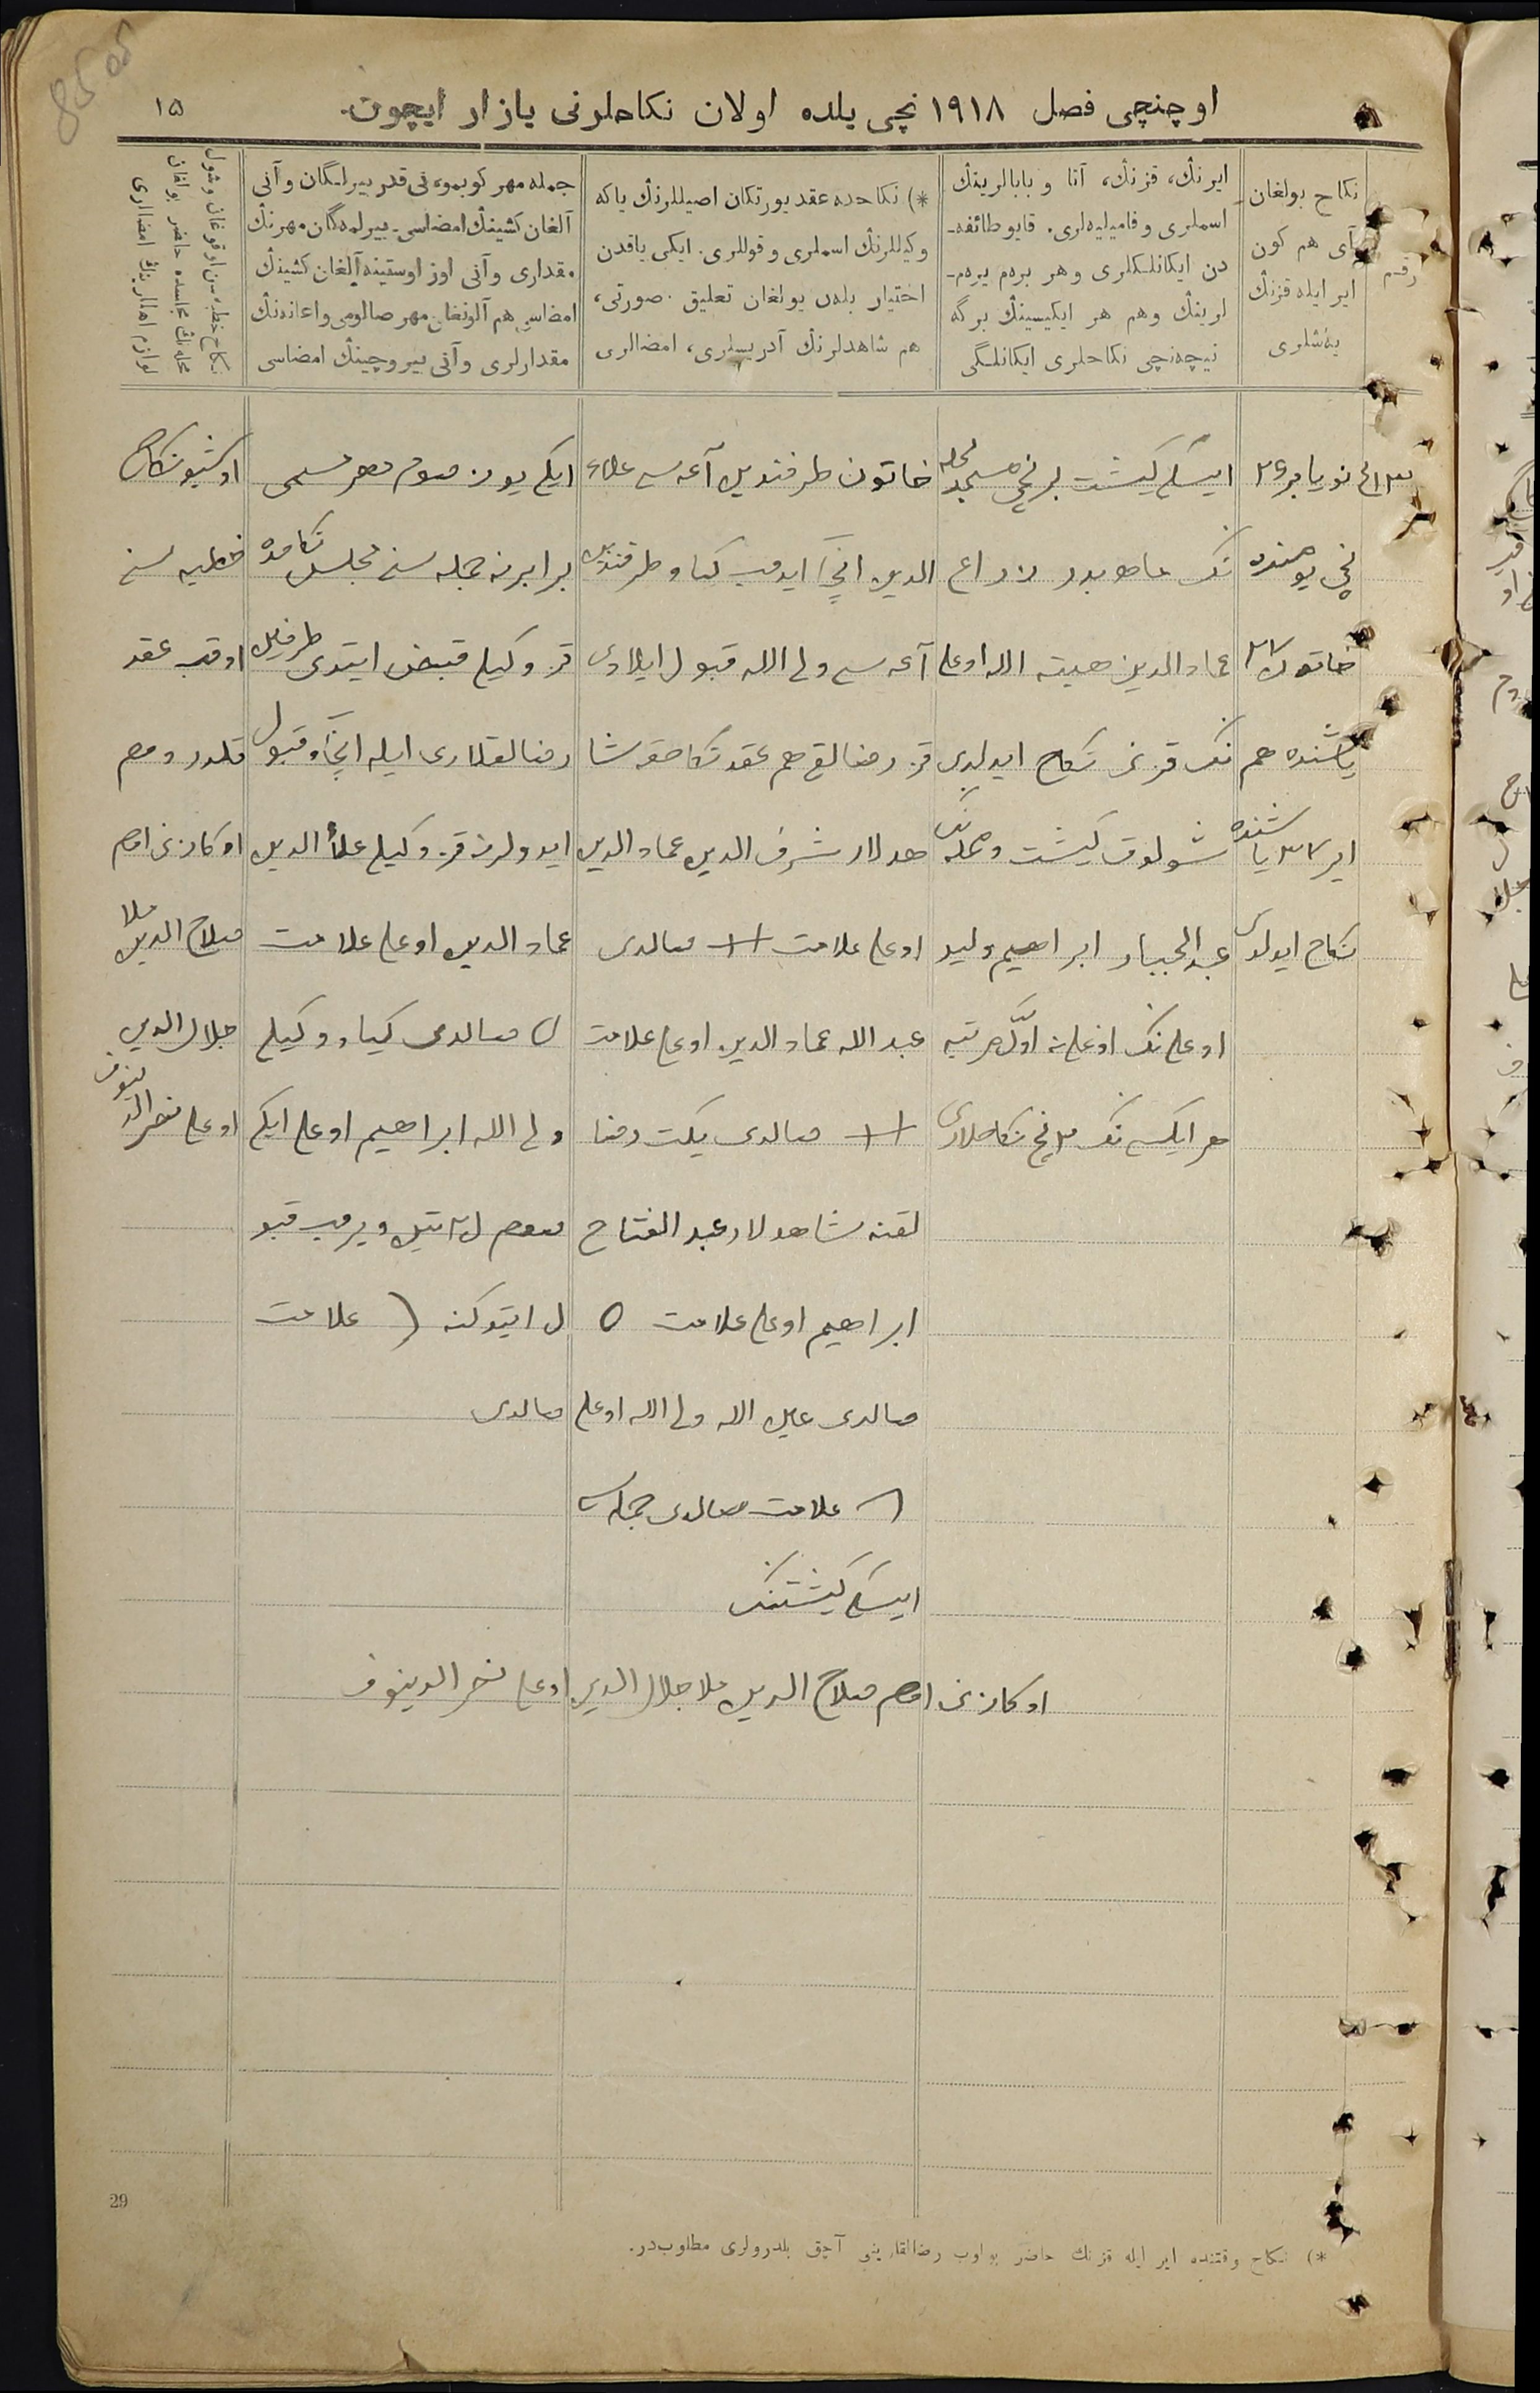 اوچنچی فصل ۱۹۱۸ نچی یلده اولان نکاحلرنی یازار ایچون
۱۵
رقم
نکاح بولغان
آی هم کون
ایر ایله قزنڭ
یەشلری
ایرنڭ، قزنڭ، آتا و بابالرینڭ
اسملری و فامیلیه‌لری. قایو طائفه‌-
دن ایکانلكلری وهر برەم یرەم-
لرینڭ وهم هر ایکیسینڭ برگه
نیچەنچی نکاحلری ایکانلگی
*) نکاحده عقد یورتکان اصیللرنڭ یاکه
وکیللرنڭ اسملری و قوللری. ایکی یاقدن
اختیار بلەن بولغان تعلیق صورتی،
هم شاهدلرنڭ آدریسلری، امضالری
جمله مهر کوبمو، نی قدر بیرلگان وآنی
آلغان کشینڭ امضاسی. بیرلمەگان مهرنڭ
مقداری وآنی اوز اوستینه آلغان کشینڭ
امضاسی هم آلونغان مهر صالومی واعانەنڭ
مقدارلری وآنی بیروچینڭ امضاسی
نکاح خطبەسن اوقوغان وشول
محلەنڭ مجلسده حاضر بولغان
لوازم اماملارینڭ امضالری
نویابر ۲۶
نچی یومنده
خاتون ۲۷
یاشنده هم
ایر ۲۷ یاشنده
نکاح ایولدی
ایسکی کیشت برنچی مسجد محله
نڭ
عماد الدین هبة الله اوغلی
نڭ قزنی نکاح ایدلدی
شولوق کیشت ومحله نڭ
عبد الجبار ابراهیم ولید
اوغلی نڭ اوغلینه اوّل مرتبه
هر ایکسی نڭ ۲نچی نکاحلاری
خاتون طرفندین آغه سی علاء
الدین ایجاب ایدوب کیاو طرفندین
آغه سی ولی الله قبول ایلادی
قز رضالقی هم عقد نکاحقه شا
هدلار شرف الدین عماد الدین
اوغلی علامت ++ صالدی
عبد الله عماد الدین اوغلی علامت
++ صالدی یکت رضا
لقنه شاهدلار عبد الفتاح
ابراهیم اوغلی علامت O
صالدی عین الله ولی الله اوغلی
علامت صالدی جمله سی
ایسکی کیشتنڭ
ایکی یوز صوم مهر مسمی
برابرنه جمله سنی مجلس نکاحده
قز وکیلی قبض ایتدی طرفین
رضالقلاری ایله ایجاب وقبول
ایدولرنه قز وکیلی علاء الدین
عماد الدین اوغلی علامت
صالدی کیاو وکیلی
ولی الله ابراهیم اوغلی ایکی
ویروب قبو
ل ایتوکنه ( علامت
صالدی
اوشبو نکاح
خطبه سنی
اوقوب عقد
قلدوردوم
اوکازنی امام
صلاح الدین ملا
جلال الدین
اوغلی فخر الدینوف
اوکازنی امام صلاح الدین ملا جلال الدین اوغلی فخر الدینوف
29
*) نکاح وقتنده ایر ایله قزنڭ حاضر بولوب رضالقلارینی آچق بلدرولری مطلوب‌در.